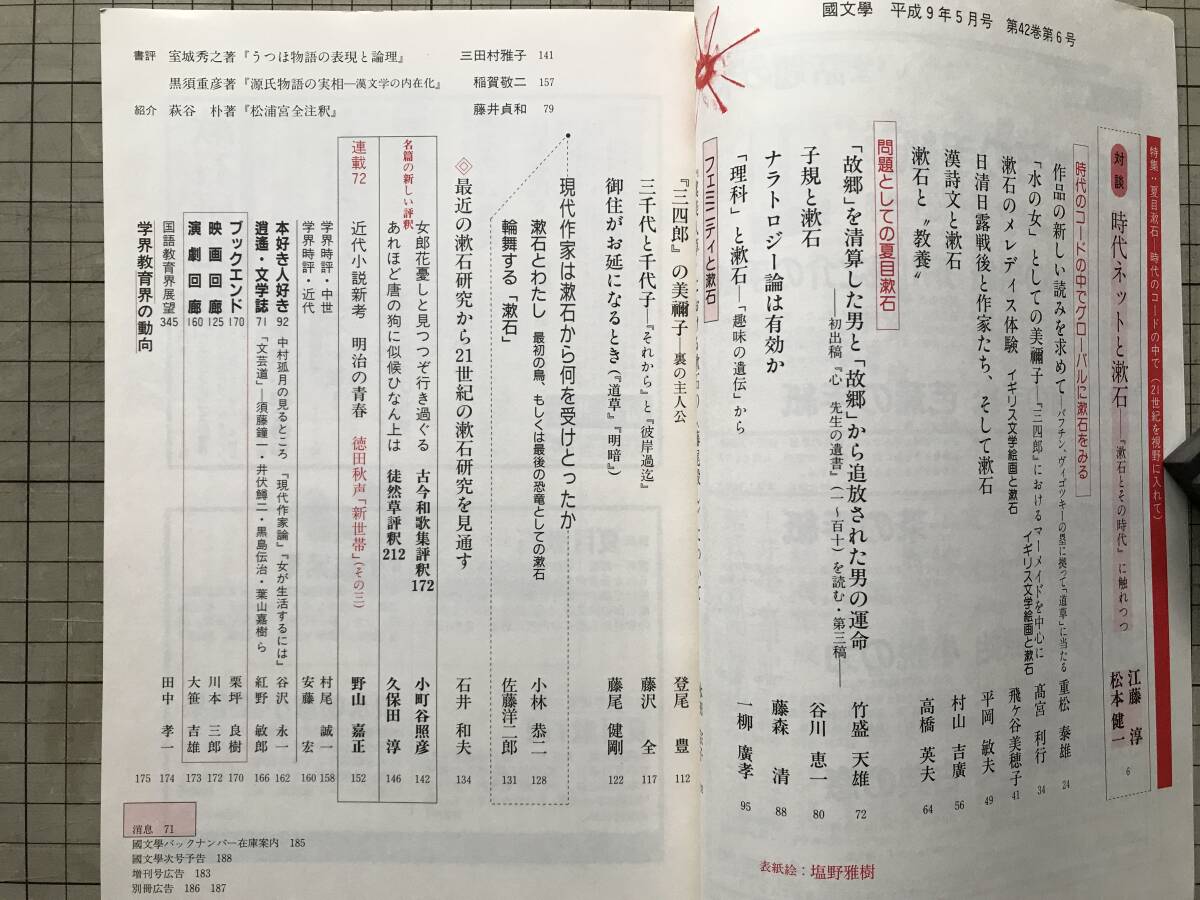 國文學 平成9年5月号 第42巻第6号
特集:夏目漱石―時代のコードの中で(21世紀を視野に入れて)
対談 時代ネットと漱石――『漱石とその時代』に触れつつ 江藤 淳 松本健一 6
時代のコードの中でグローバルに漱石をみる
作品の新しい読みを求めて―バフチン、ヴィゴツキーの塁に拠って『道草』に当たる 重松 泰雄 24
「水の女」としての美禰子―『三四郎』におけるマーメイドを中心に イギリス文学絵画と漱石 髙宮 利行 34
漱石のメレディス体験 イギリス文学絵画と漱石 飛ヶ谷美穂子 41
日清日露戦後と作家たち、そして漱石 平岡 敏夫 49
漢詩文と漱石 村山 吉廣 56
漱石と〝教養〟 高橋 英夫 64
問題としての夏目漱石
「故郷」を清算した男と「故郷」から追放された男の運命――初出稿『心 先生の遺書』(一~百十)を読む・第三稿―― 竹盛 天雄 72
子規と漱石 谷川 恵一 80
ナラトロジー論は有効か 藤森 清 88
「理科」と漱石―「趣味の遺伝」から 一柳 廣孝 95
フェミニティと漱石
表紙絵:塩野雅樹
『三四郎』の美禰子――裏の主人公 登尾 豊 112
三千代と千代子―『それから』と『彼岸過迄』 藤沢 全 117
御住がお延になるとき(『道草』『明暗』) 藤尾 健剛 122
現代作家は漱石から何を受けとったか
漱石とわたし 最初の鳥、もしくは最後の恐竜としての漱石 小林 恭二 128
輪舞する「漱石」 佐藤洋二郎 131
◇最近の漱石研究から21世紀の漱石研究を見通す 石井 和夫 134
名篇の新しい評釈
女郎花憂しと見つつぞ行き過ぐる 古今和歌集評釈172 小町谷照彦 142
あれほど唐の狗に似候ひなん上は 徒然草評釈212 久保田 淳 146
連載72 近代小説新考 明治の青春 徳田秋声「新世帯」(その三) 野山 嘉正 152
学界時評・中世 村尾 誠一 158
学界時評・近代 安藤 宏 160
本好き人好き 92 中村孤月の見るところ 「現代作家論」「女が生活するには」 谷沢 永一 162
逍遙・文学誌 71 「文芸道」―須藤鐘一・井伏鱒二・黒島伝治・葉山嘉樹 ら 紅野 敏郎 166
ブックエンド 170 栗坪 良樹 170
映画回廊 125 川本 三郎 172
演劇回廊 160 大笹 吉雄 173
国語教育界展望 345 田中 孝一 174
学界教育界の動向 175
書評 室城秀之著『うつほ物語の表現と論理』 三田村雅子 141
黒須重彦著『源氏物語の実相―漢文学の内在化』 稲賀敬二 157
紹介 萩谷 朴著『松浦宮全注釈』 藤井貞和 79
消息 71
國文學バックナンバー在庫案内 185
國文學次号予告 188
増刊号広告 183
別冊広告 186 187